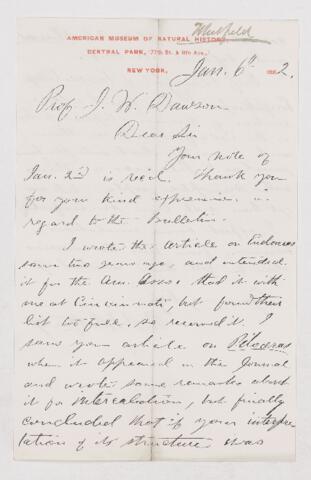 Whitfield
AMERICAN MUSEUM OF NATURAL HISTORY
CENTRAL PARK, (77th St. & 8th Ave.)
NEW YORK, Jan. 6th 1882.
Prof. J. W. Dawson
Dear Sir
Your note of
Jan. 2nd is rec'd. Thank you
for your kind expression in
regard to the Bulletin.
I wrote the article on
some two years ago, and intended
it for the Am. Assoc had it with
me at Cincinnati, but found their
list full, so reserved it. I
saw your article on
when it appeared in the Journal
and wrote some remarks about
it for intercalation, but finally
concluded that if your interpre
tation of its structure was